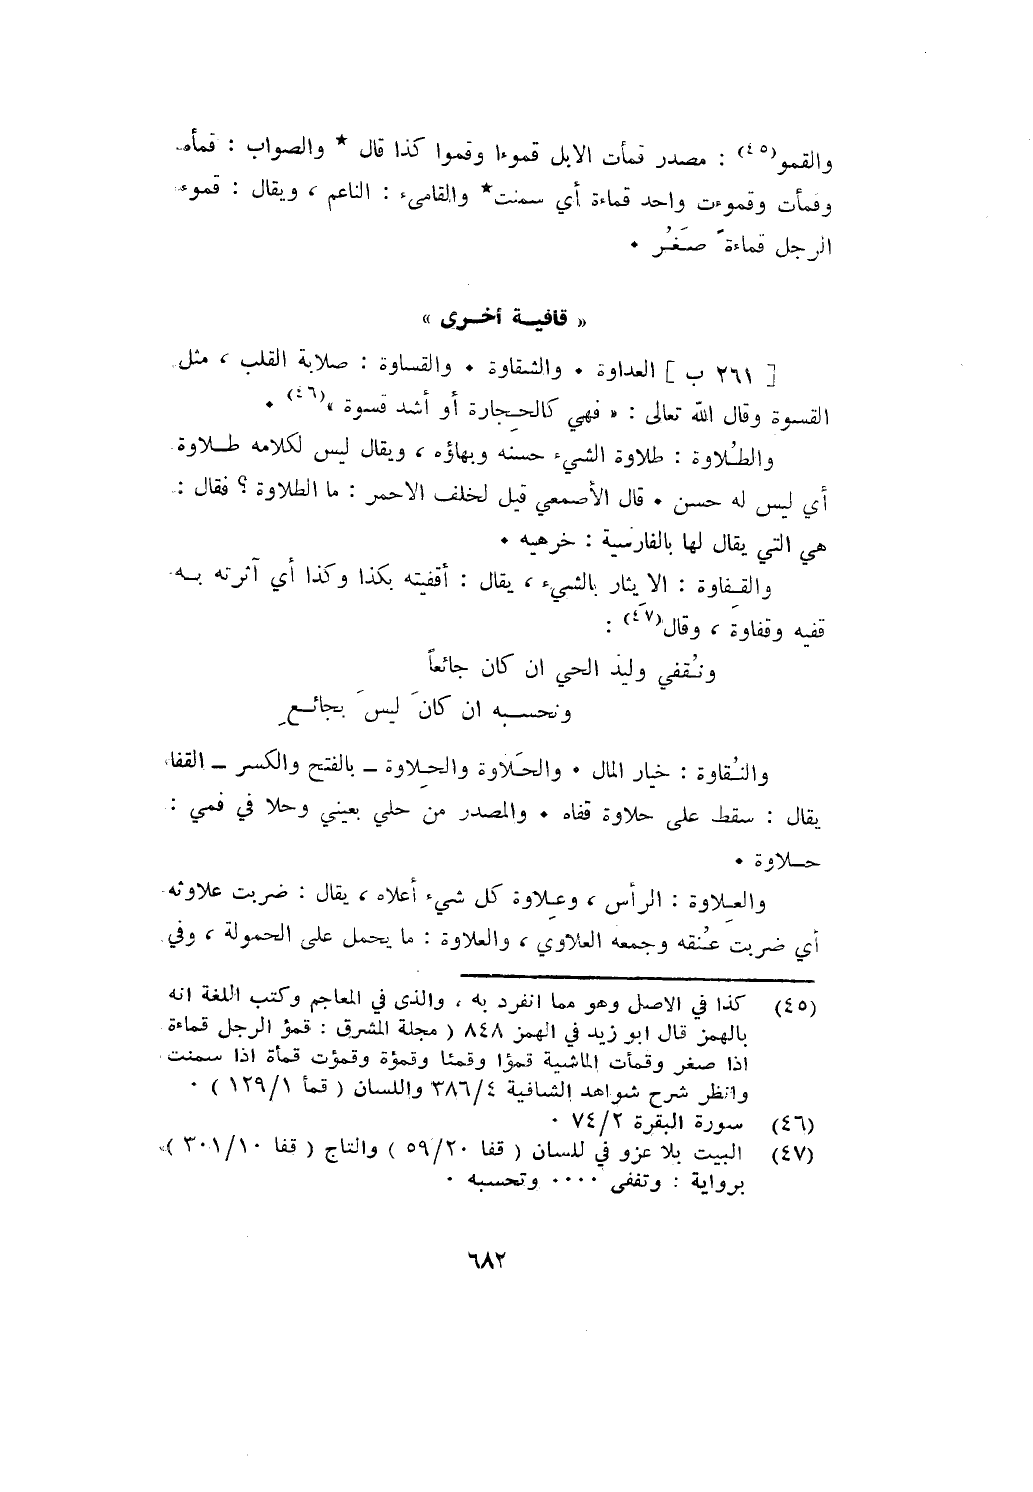 والقمو(٤٥) : مصدر قمأت الابل قموءا وقموا كذا قال * والصواب : قمأه
وقمأت وقموءت واحد قماءة أي سمنت* والقامىء : الناعم ، ويقال : قموء
الرجل قماءةً صَغُر ٠
« قافيـة أخـرى »
[ ٢٦١ ب ] العداوة ٠ والشقاوة ٠ والقساوة : صلابة القلب ، مثل
القسوة وقال الله تعالى : « فهي كالحجارة أو أشد قسوة »(٤٦) ٠
والطُلاوة : طلاوة الشيء حسنه وبهاؤه ، ويقال ليس لكلامه طـلاوة
أي ليس له حسن ٠ قال الأصمعي قيل لخلف الاحمر : ما الطلاوة ؟ فقال :
هي التي يقال لها بالفارسية : خرهيه ٠
والقِـفاوة : الايثار بالشيء ، يقال : أقفيته بكذا وكذا أي آثرته بـه
قفيه وقفاوَة ، وقال(٤٧) :
ونُقفي وليدَ الحي ان كان جائعاً
ونحسـبه ان كانَ ليسَ بجائـعِ
والنُقاوة : خيار المال ٠ والحَلاوة والحِلاوة ــ بالفتح والكسر ــ القفا
يقال : سقط على حلاوة قفاه ٠ والمصدر من حلي بعيني وحلا في فمي :
حـلاوة ٠
والعِـلاوة : الرأس ، وعِـلاوة كل شيء أعلاه ، يقال : ضربت علاوته
أي ضربت عُنقه وجمعه العلاوي ، والعلاوة : ما يحمل على الحمولة ، وفي
(٤٥) كذا في الاصل وهو مما انفرد به ، والذى في المعاجم وكتب اللغة انه
بالهمز قال ابو زيد في الهمز ٨٤٨ ( مجلة المشرق : قمؤ الرجل قماءة
اذا صغر وقمأت الماشية قمؤا وقمئا وقمؤة وقمؤت قمأة اذا سمنت
وانظر شرح شواهد الشافية ٣٨٦/٤ واللسان ( قمأ ١٢٩/١ ) ٠
(٤٦) سورة البقرة ٧٤/٢ ٠
(٤٧) البيت بلا عزو في للسان ( قفا ٥٩/٢٠ ) والتاج ( قفا ٣٠١/١٠ )
برواية : وتقفى ٠٠٠٠ وتحسبه ٠
٦٨٢